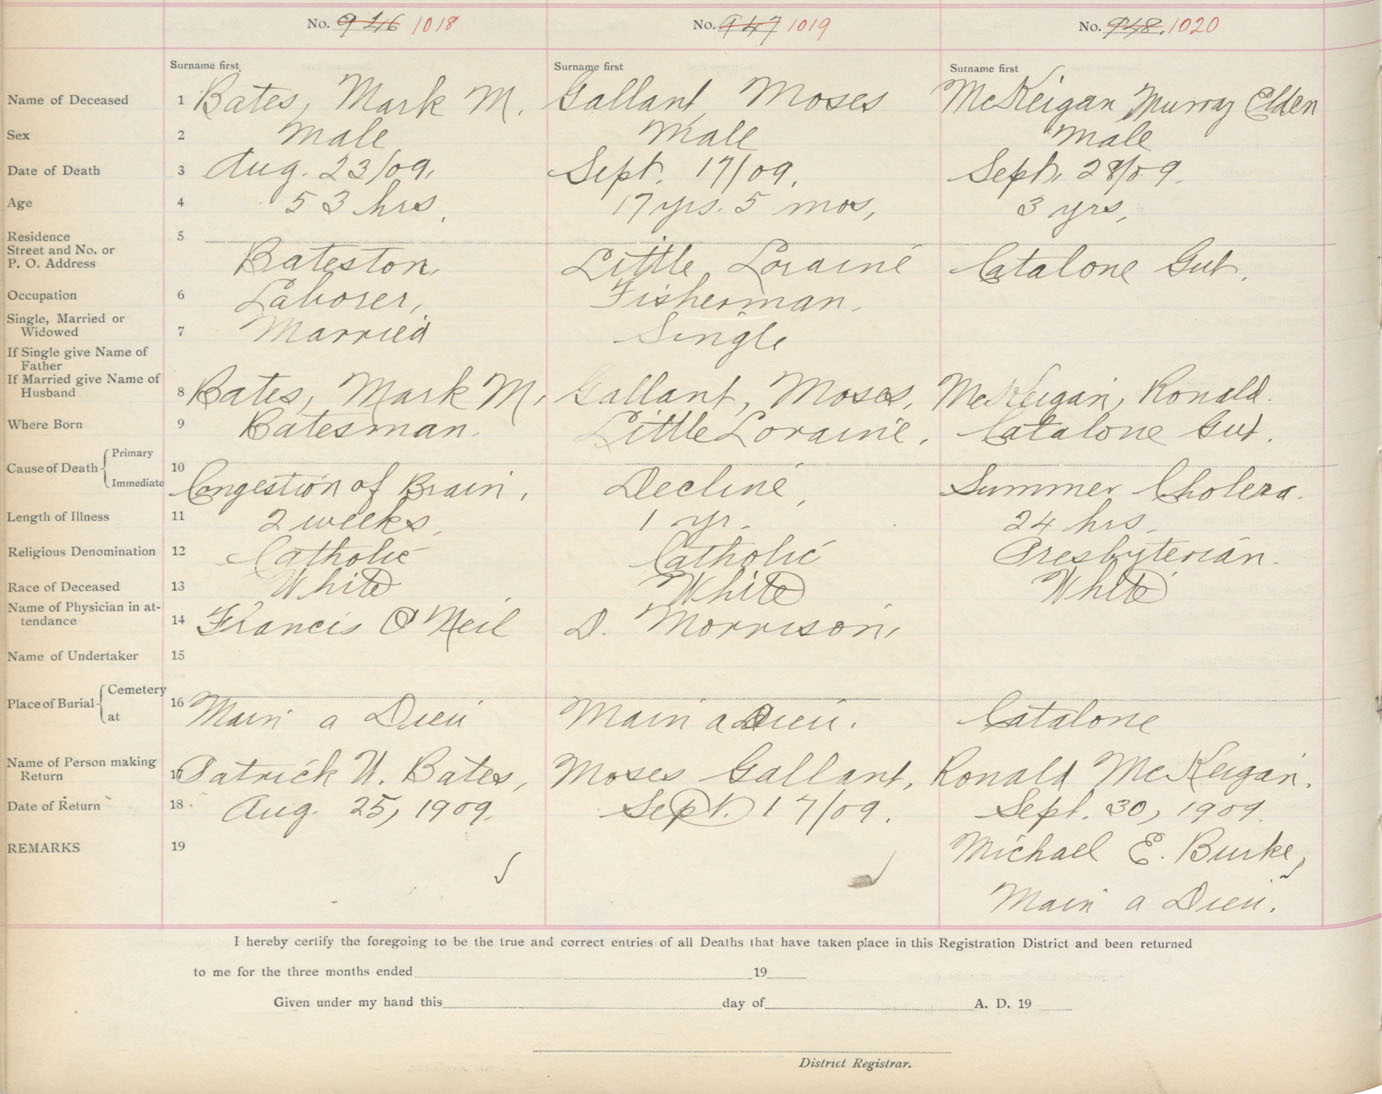 No. 946 1018 No. 947 1019 No. 948. 1020
Surname first Surname first Surname first
Name of Deceased 1 Bates, Mark M. Gallant, Moses McKeigan Murray Elden
Sex 2 Male Male Male
Date of Death 3 Aug. 23/09. Sept. 17/09. Sept. 28/09.
Age 4 53 hrs. 17 yrs. 5 mos, 3 yrs,
Residence 5
Street and No. or
P. O. Address Bateston, Little Loraine Catalone Gut.
Occupation 6 Laborer, Fisherman.
Single, Married or
Widowed 7 Married Single
If Single give Name of
Father
If Married give Name of
Husband 8 Bates, Mark M. Gallant, Moses, McKeigan, Ronald.
Where Born 9 Batesman. Little Loraine. Catalone Gut.
Cause of Death Primary 10
Immediate Congestion of Brain, Decline, Summer Cholera.
Length of Illness 11 2 weeks, 1 yr. 24 hrs.
Religious Denomination 12 Catholic Catholic Presbyterian.
Race of Deceased 13 White White White
Name of Physician in at-
tendance 14 Francis O'Neil D. Morrison,
Name of Undertaker 15
Place of Burial Cemetery
at 16 Main a Dieu Main a Dieu. Catalone
Name of Person making
Return 17 Patrick W. Bates, Moses Gallant, Ronald McKeigan.
Date of Return 18 Aug. 25, 1909. Sept. 17/09. Sept. 30, 1909.
REMARKS 19 Michael E. Burke,
Main a Dieu.
I hereby certify the foregoing to be the true and correct entries of all Deaths that have taken place in this Registration District and been returned
to me for the three months ended 19
Given under my hand this day of A. D. 19
District Registrar.